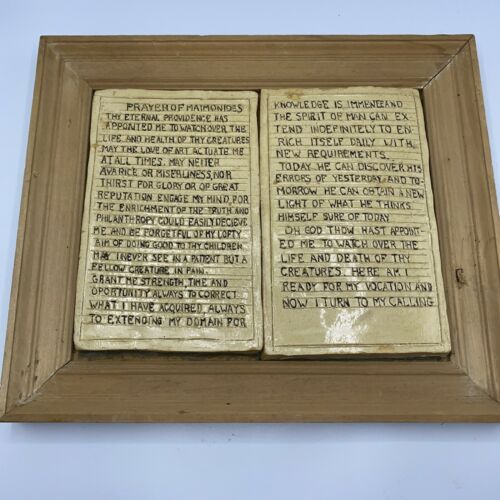 PRAYER OF MAIMONIDES
THY ETERNAL PROVIDENCE HAS
APPOINTED ME TO WATCH OVER THE
LIFE AND HEALTH OF THY CREATURES
MAY THE LOVE OF ART ACTUATE ME
AT ALL TIMES. MAY NEITER
AVARICE OR MISERLINESS, NOR
THIRST FOR GLORY OR OF GREAT
REPUTATION ENGAGE MY MIND, FOR
THE ENRICHMENT OF THE TRUTH AND
PHILANTHROPY COULD EASILY DECIEVE
ME AND BE FORGETFUL OF MY LOFTY
AIM OF DOING GOOD TO THY CHILDREN
MAY I NEVER SEE IN A PATIENT BUT A
FELLOW CREATURE IN PAIN.
GRANT ME STRENGTH, TIME AND
OPORTUNITY ALWAYS TO CORRECT
WHAT I HAVE ACQUIRED ALWAYS
TO EXTENDING MY DOMAIN FOR
KNOWLEDGE IS IMMENSE AND
THE SPIRIT OF MAN CAN EX-
TEND INDEFINITELY TO EN-
RICH ITSELF DAILY WITH
NEW REQUIREMENTS.
TODAY HE CAN DISCOVER HIS
ERRORS OF YESTERDAY AND TO-
MORROW HE CAN OBTAIN A NEW
LIGHT OF WHAT HE THINKS
HIMSELF SURE OF TODAY
OH GOD THOU HAST APPOINT-
ED ME TO WATCH OVER THE
LIFE AND DEATH OF THY
CREATURES. HERE AM I
READY FOR MY VOCATION AND
NOW I TURN TO MY CALLING